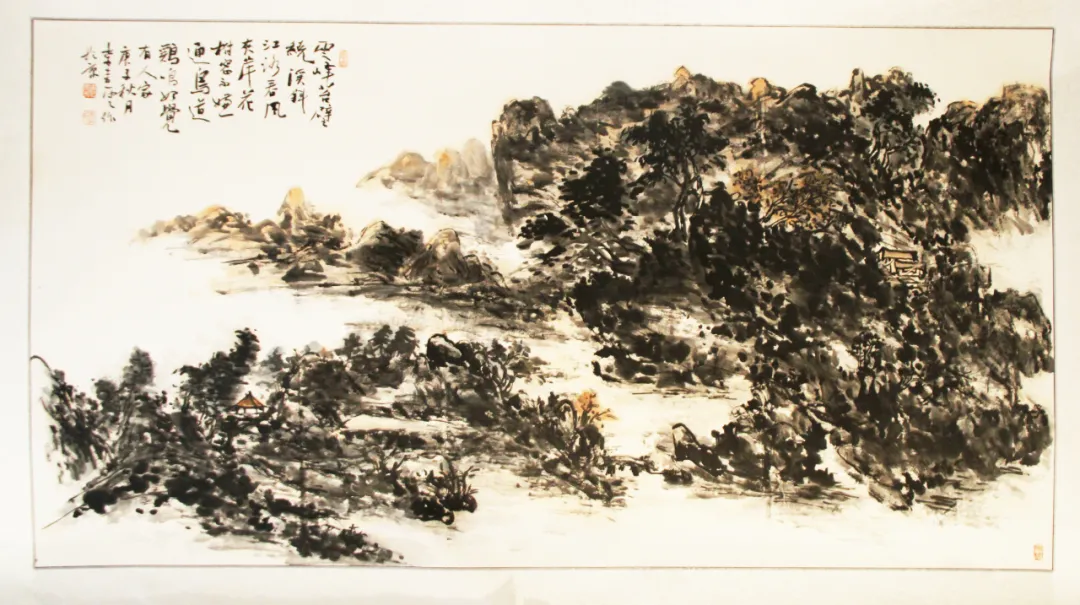 雲峰苔壁
繞溪斜
江路香風
夾岸花
樹密不言
通鳥道
鷄鳴始覺
有人家
庚子秋月
於京